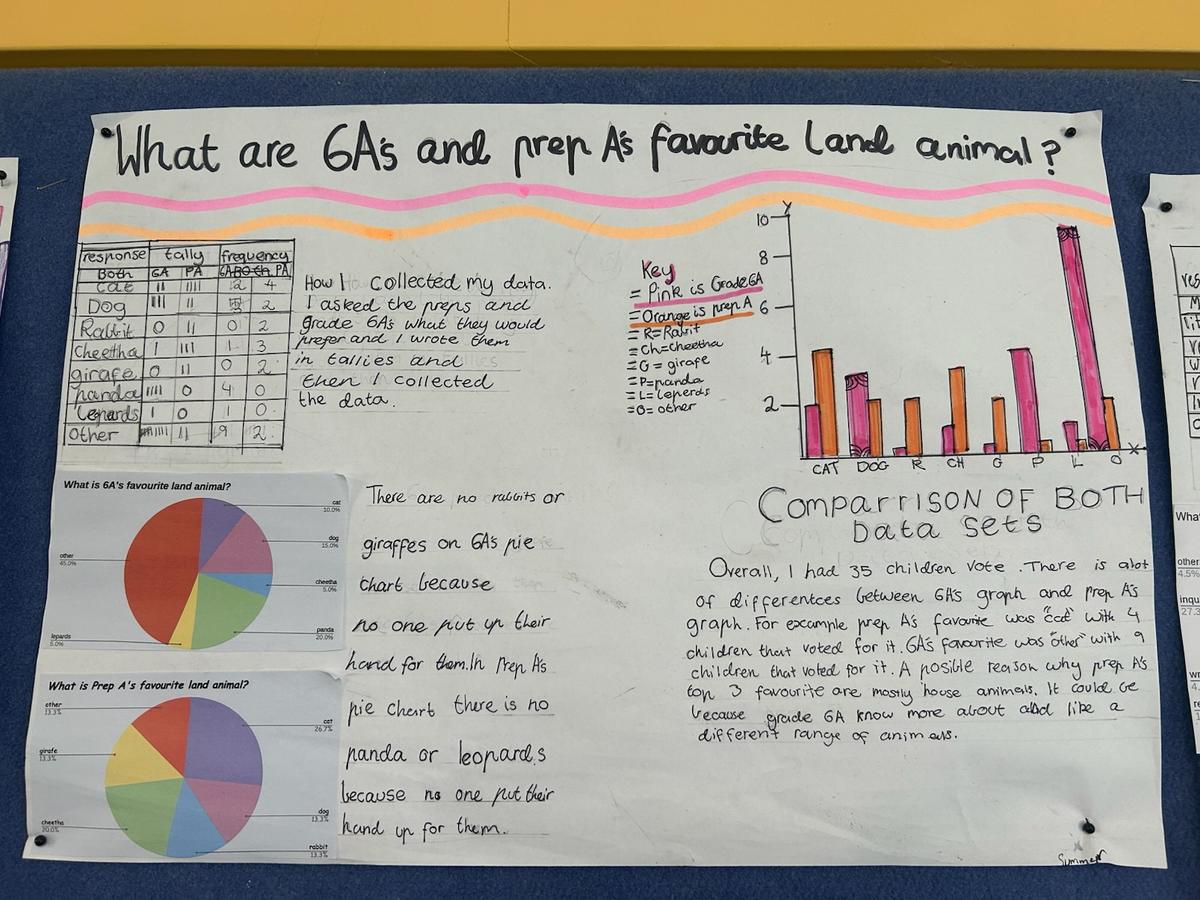 What are 6A's and prep A's favourite land animal?
response tally frequency
Both 6A PA 6A Both PA
cat II IIII 2 4
Dog III II 3 2
Rabbit O II 0 2
Cheetha I III 1 3
girafe O II 0 2
panda IIII O 4 0
leperds I O 1 0
Other II 9 2
How I collected my data.
I asked the preps and
grade 6A's what they would
prefer and I wrote them
in tallies and
then I collected
the data.
Key
= Pink is Grade 6A
= Orange is prep A
= R= Rabit
= Ch=cheetha
= G = girafe
= P=panda
= L= leperds
= O= other
Y
10
8
6
4
2
X
CAT DOG R CH G P L O
What is 6A's favourite land animal?
cat
10.0%
dog
15.0%
other
45.0%
cheetha
5.0%
panda
20.0%
lepards
5.0%
There are no rabbits or
giraffes on 6A's pie
chart because
no one put up their
hand for them. In Prep A's
pie chart there is no
panda or leopards
because no one put their
hand up for them.
What is Prep A's favourite land animal?
other
13.3%
cat
26.7%
girafe
13.3%
dog
13.3%
cheetha
20.0%
rabbit
13.3%
COMPARRISON OF BOTH
Data sets
Overall, I had 35 children vote. There is alot
of differentces between 6A's graph and prep A's
graph. For example prep A's favourite was "cat" with 4
children that voted for it. 6A's favourite was "other" with 9
children that voted for it. A posible reason why prep A's
top 3 favourite are mostly house animals. It could be
because grade 6A know more about and like a
different range of animals.
Summer
What
other
4.5%
27.3